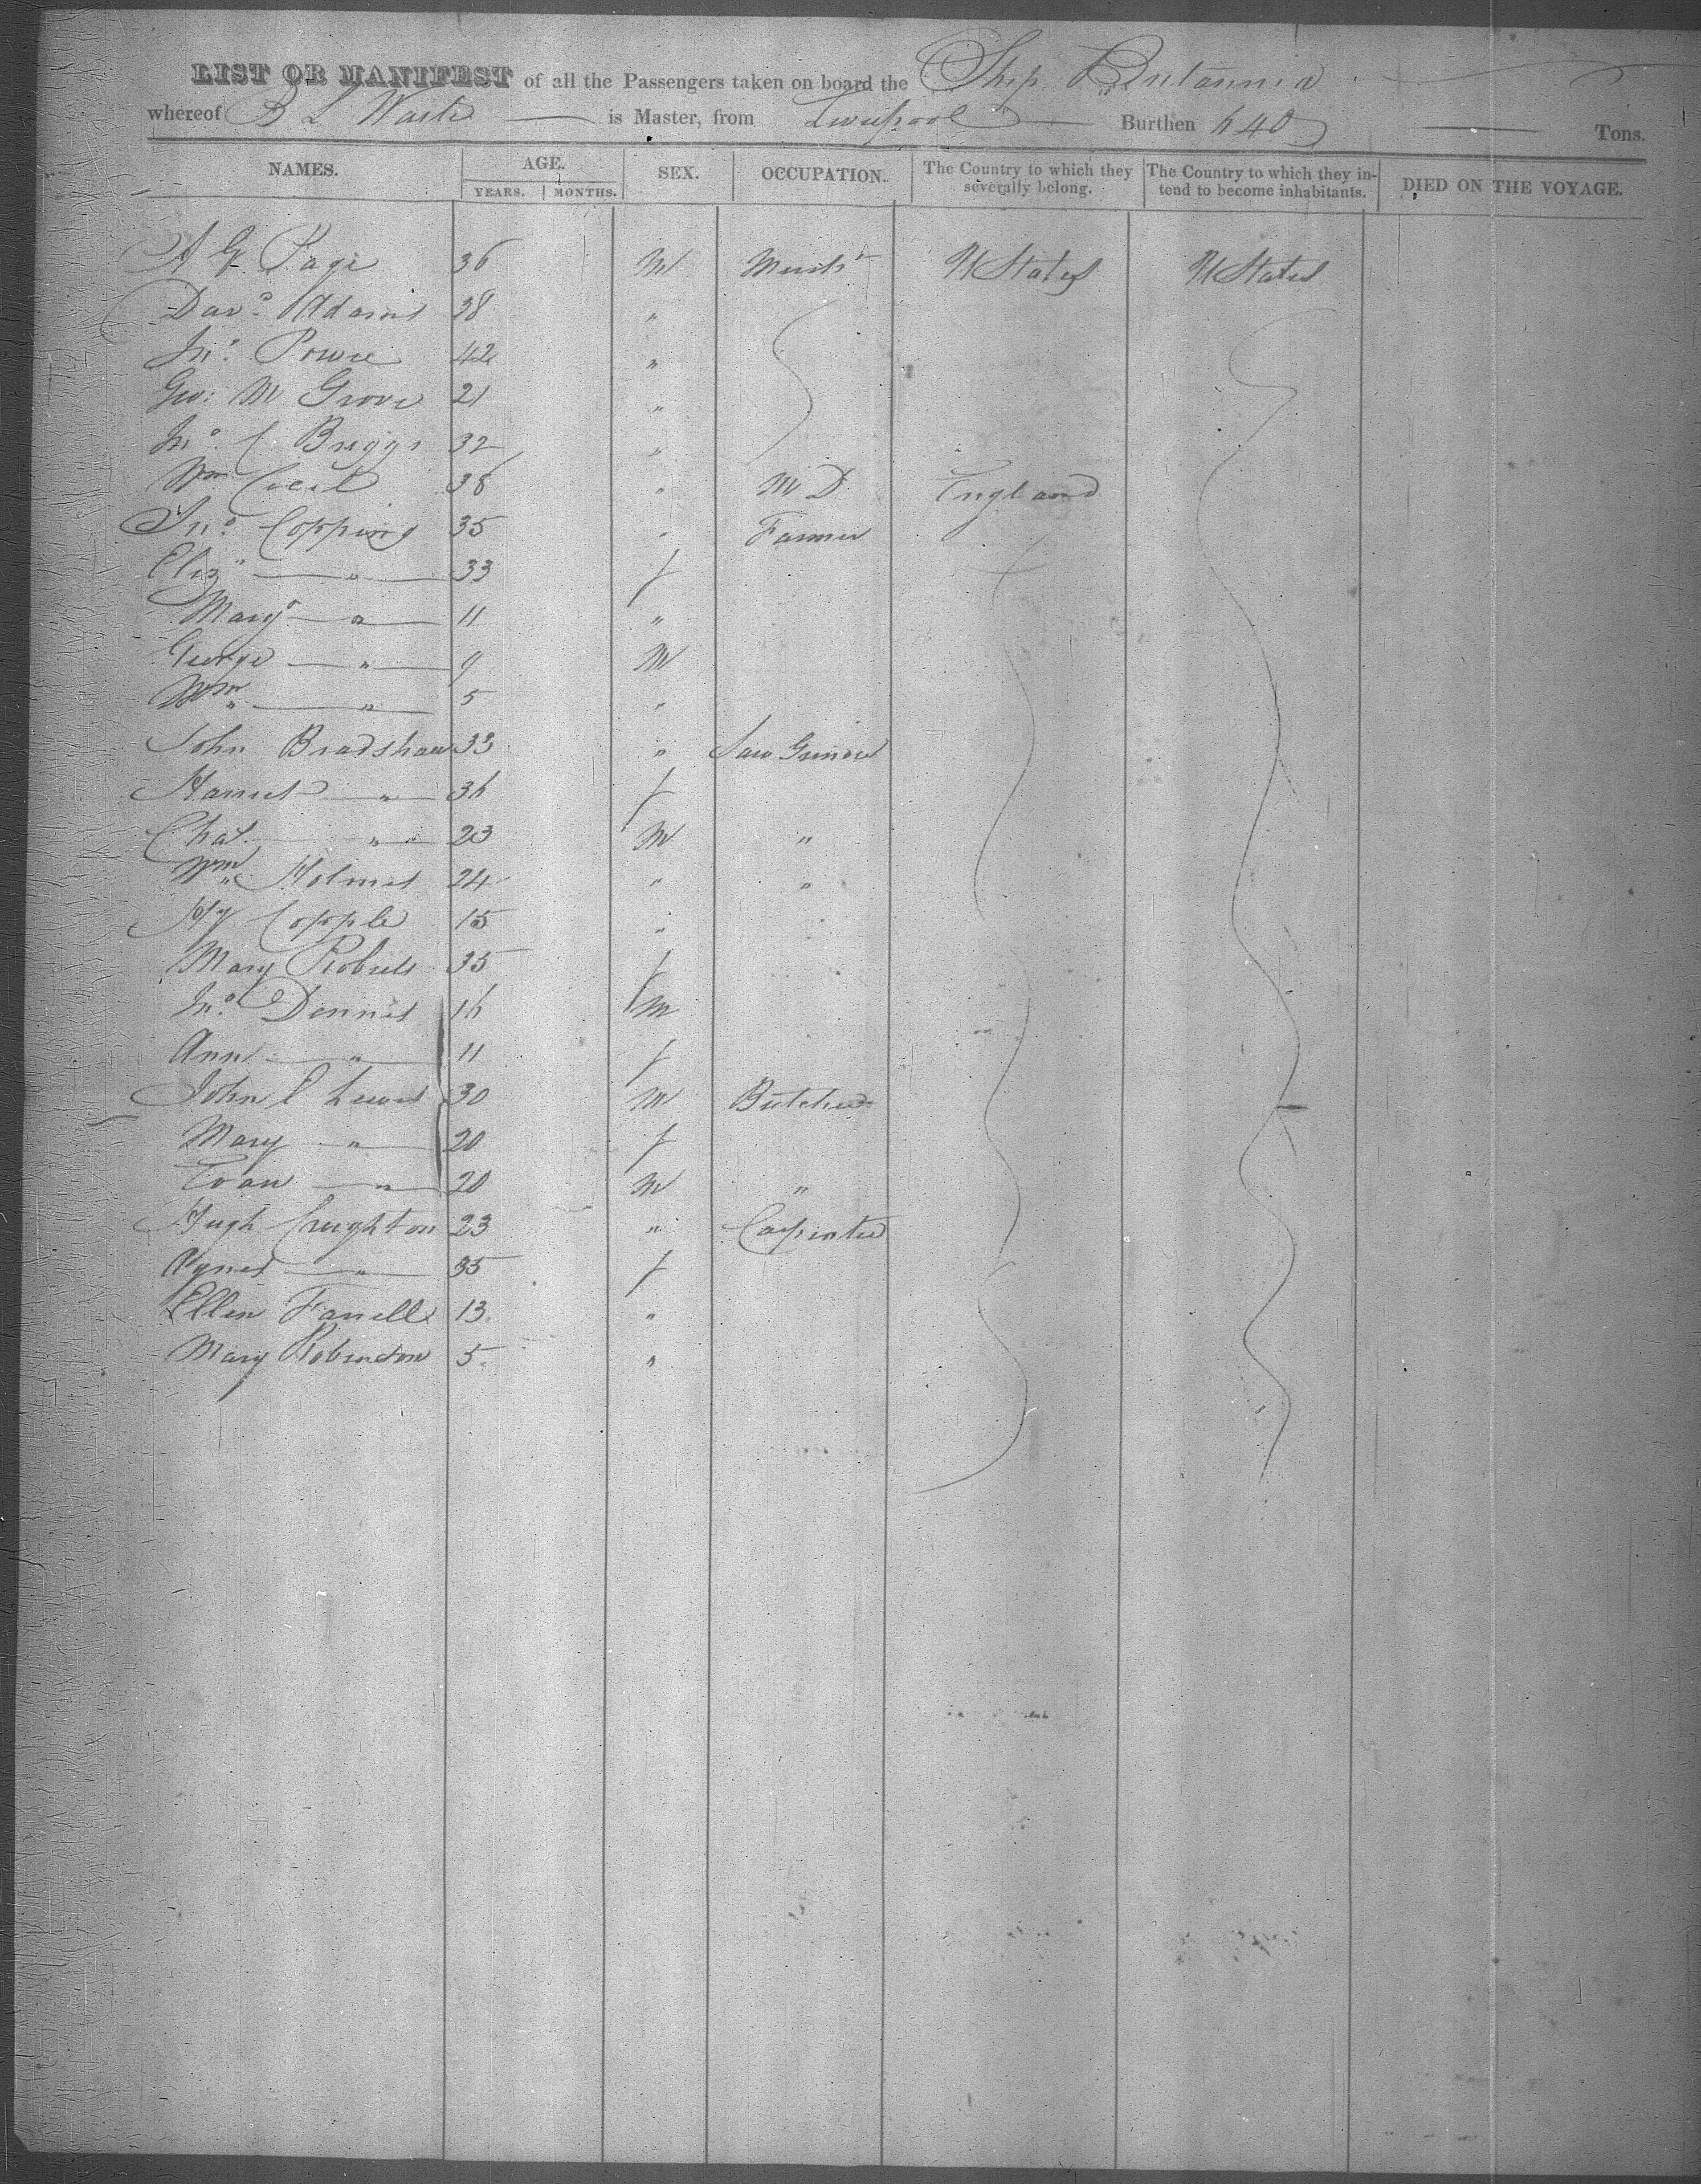 LIST OR MANIFEST of all the Passengers taken on board the Ship Britannia
whereof B L Waite is Master, from Liverpool Burthen 640 Tons.
NAMES. AGE. YEARS. MONTHS. SEX. OCCUPATION. The Country to which they severally belong. The Country to which they intend to become inhabitants. DIED ON THE VOYAGE.
A G Page 36 M Mercht U States U States
Davd Adams 38 "
Jno. Powee 42 "
Geo: M Grove 21 "
Jno. C Briggs 32 "
Wm Cecil 38 " M D England
Jno. Copping 35 " Farmer
Eliza " 33 f
Mary " 11 "
George " 9 M
Wm " 5 "
John Bradshaw 33 " Saw Grinder
Harriet " 36 f
Chas. " 23 M "
Wm Holmes 24 " "
Hy Copple 15 "
Mary Roberts 35 f
Jno. Dennis 16 M
Ann " 11 f
John C Lewis 30 M Butcher
Mary " 20 f
Evan " 20 M "
Hugh Creighton 23 " Carpenter
Agnes " 35 f
Ellen Farrell 13 "
Mary Robinson 5 "